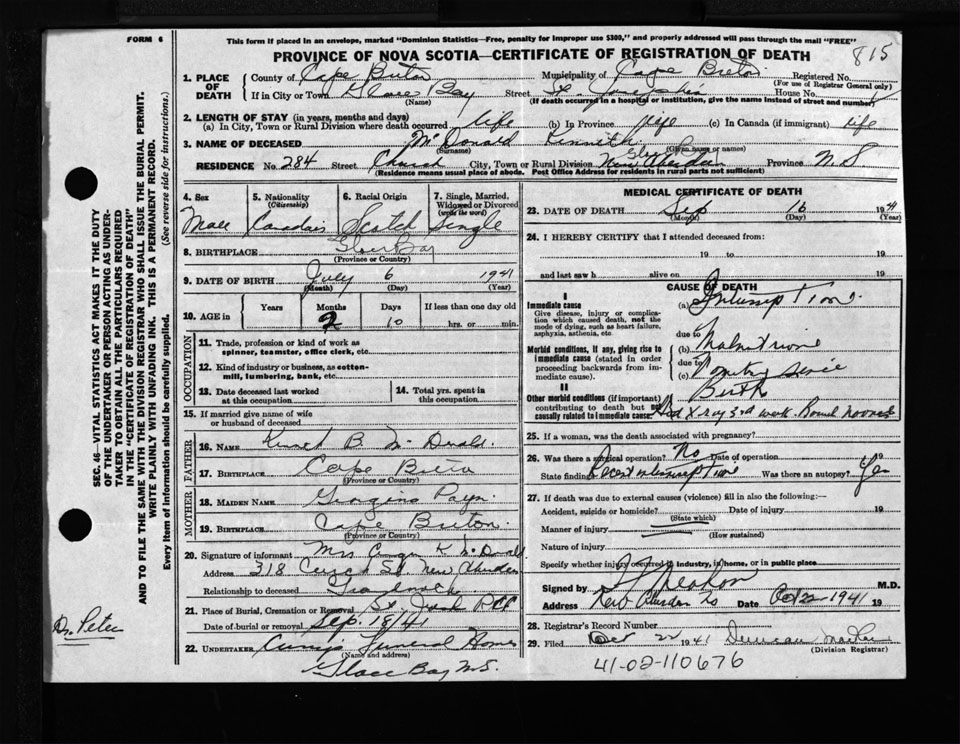 This form if placed in an envelope, marked "Dominion Statistics—Free, penalty for improper use $300," and properly addressed will pass through the mail "FREE"
FORM 6
815
PROVINCE OF NOVA SCOTIA—CERTIFICATE OF REGISTRATION OF DEATH
SEC. 46—VITAL STATISTICS ACT MAKES IT THE DUTY
OF THE UNDERTAKER OR PERSON ACTING AS UNDER-
TAKER TO OBTAIN ALL THE PARTICULARS REQUIRED
IN THE "CERTIFICATE OF REGISTRATION OF DEATH"
AND TO FILE THE SAME WITH THE DIVISION REGISTRAR WHO SHALL ISSUE THE BURIAL PERMIT.
WRITE PLAINLY WITH UNFADING INK. THIS IS A PERMANENT RECORD.
Every item of information should be carefully supplied. (See reverse side for instructions.)
1. PLACE OF DEATH County of Cape Breton Municipality of Cape Breton Registered No.
(For use of Registrar General only)
If in City or Town Glace Bay Street St. House No.
(Name) (If death occurred in a hospital or institution, give the name instead of street and number)
2. LENGTH OF STAY (in years, months and days)
(a) In City, Town or Rural Division where death occurred life (b) In Province life (c) In Canada (if immigrant) life
3. NAME OF DECEASED McDonald Kenneth
(Surname) (Given name or names)
RESIDENCE No. 284 Street Church City, Town or Rural Division New Aberdeen Province N.S.
(Residence means usual place of abode. Post Office Address for residents in rural parts not sufficient)
4. Sex 5. Nationality (Citizenship) 6. Racial Origin 7. Single, Married, Widowed or Divorced (write the word)
Male Canadian Scotch Single
8. BIRTHPLACE Glace Bay
(Province or Country)
9. DATE OF BIRTH July 6 1941
(Month) (Day) (Year)
10. AGE in Years Months Days If less than one day old
2 10 hrs. or min.
OCCUPATION
11. Trade, profession or kind of work as spinner, teamster, office clerk, etc.
12. Kind of industry or business, as cotton-mill, lumbering, bank, etc.
13. Date deceased last worked at this occupation 14. Total yrs. spent in this occupation
15. If married give name of wife or husband of deceased
FATHER
16. NAME B. McDonald
17. BIRTHPLACE Cape Breton
(Province or Country)
MOTHER
18. MAIDEN NAME Georgina
19. BIRTHPLACE Cape Breton
(Province or Country)
20. Signature of informant Mrs K McDonald
Address 318 St New Aberdeen
Relationship to deceased
21. Place of Burial, Cremation or Removal St.
Date of burial or removal Sep. 18/41
22. UNDERTAKER Funeral Home
(Name and address)
Glace Bay N.S.
MEDICAL CERTIFICATE OF DEATH
23. DATE OF DEATH Sep 16 1941
(Month) (Day) (Year)
24. I HEREBY CERTIFY that I attended deceased from:
19 to 19
and last saw h alive on 19
CAUSE OF DEATH
I
Immediate cause
Give disease, injury or complication which caused death, not the mode of dying, such as heart failure, asphyxia, asthenia, etc.
(a)
due to
Morbid conditions, if any, giving rise to immediate cause (stated in order proceeding backwards from immediate cause).
(b)
due to
(c) Vomiting since
II
Other morbid conditions (if important) contributing to death but not causally related to immediate cause.
Birth
Had X-ray 3rd week. Bowel
25. If a woman, was the death associated with pregnancy?
26. Was there a surgical operation? No Date of operation 19
State findings Was there an autopsy? Yes
27. If death was due to external causes (violence) fill in also the following:—
Accident, suicide or homicide? Date of injury 19
(State which)
Manner of injury
(How sustained)
Nature of injury
Specify whether injury occurred in industry, in home, or in public place
Signed by M.D.
Address New Aberdeen NS Date Oct 22 1941 19
28. Registrar's Record Number
29. Filed Oct 22 1941 Duncan
(Division Registrar)
41-02-110676
Dr Peter